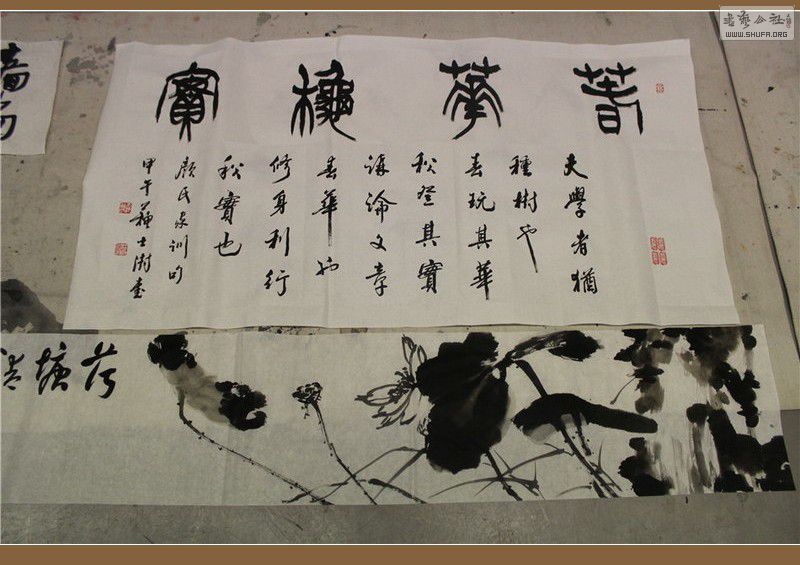 書藝公社
WWW.SHUFA.ORG
春華龝實
夫學者猶
種樹也
春玩其華
秋登其實
講論文章
春華也
修身利行
秋實也
顏氏家訓句
甲午蘇士澍書
荷塘清